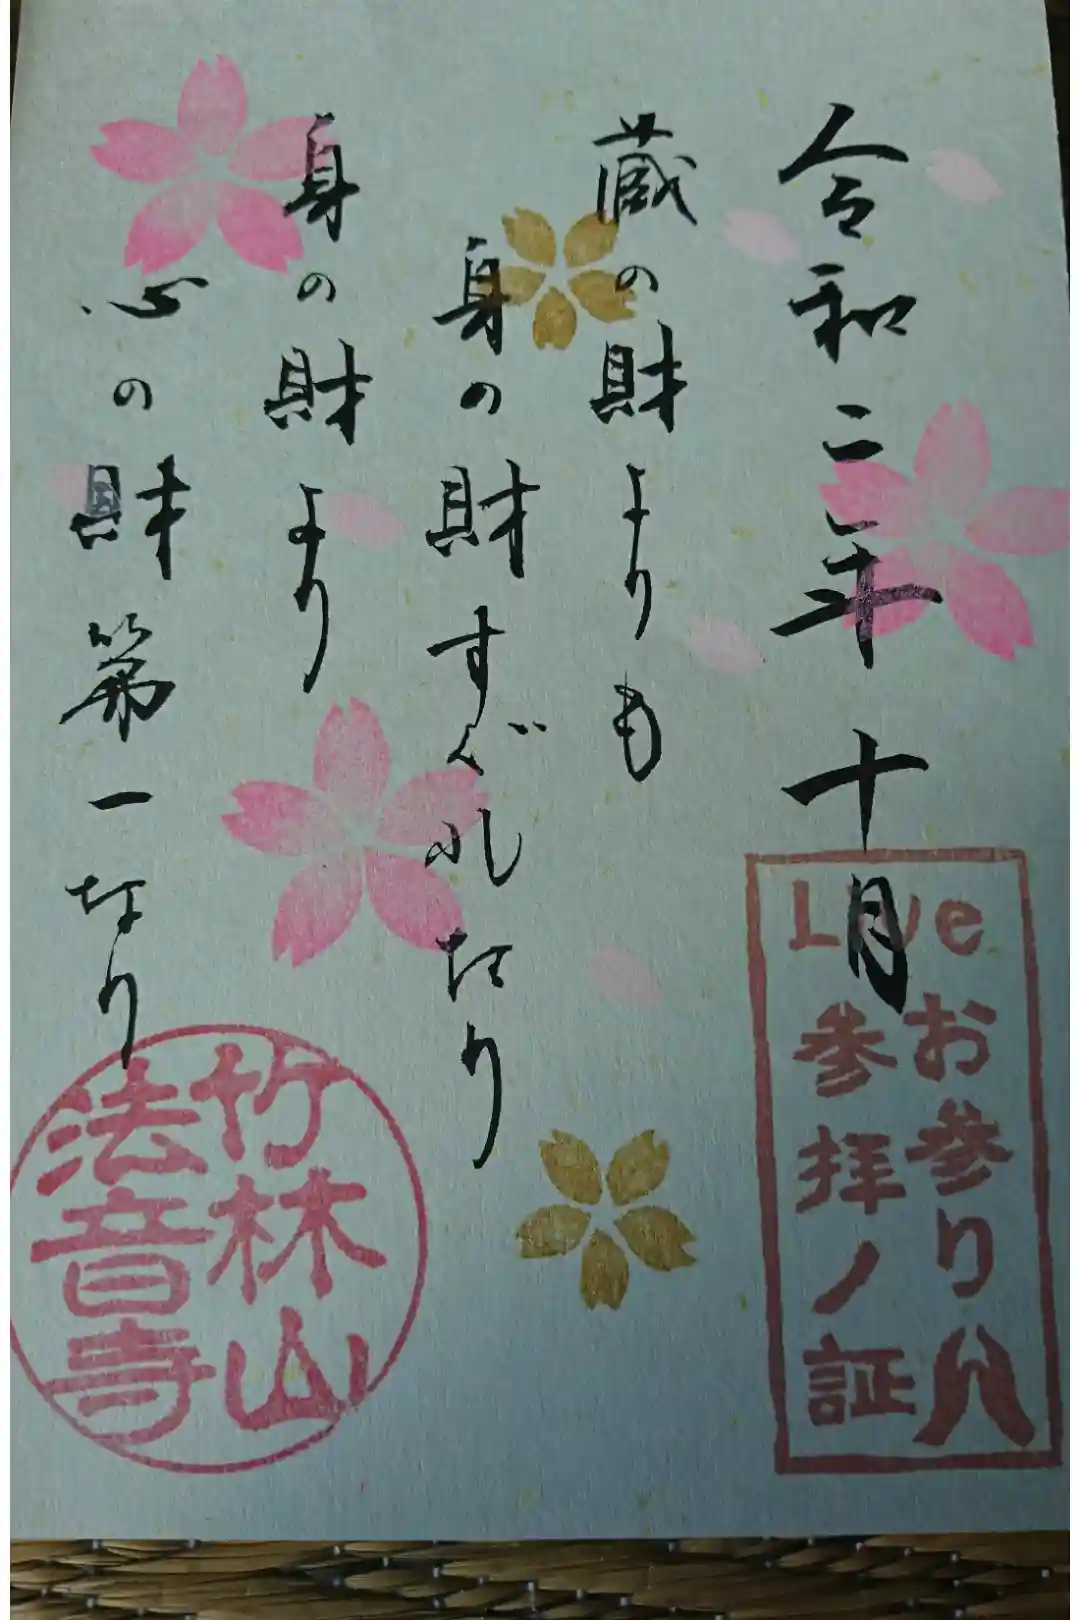 令和二年十月
蔵の財よりも
身の財すぐれたり
身の財より
心の財第一なり
Live
お参り
参拝ノ証
竹林山
法音寺